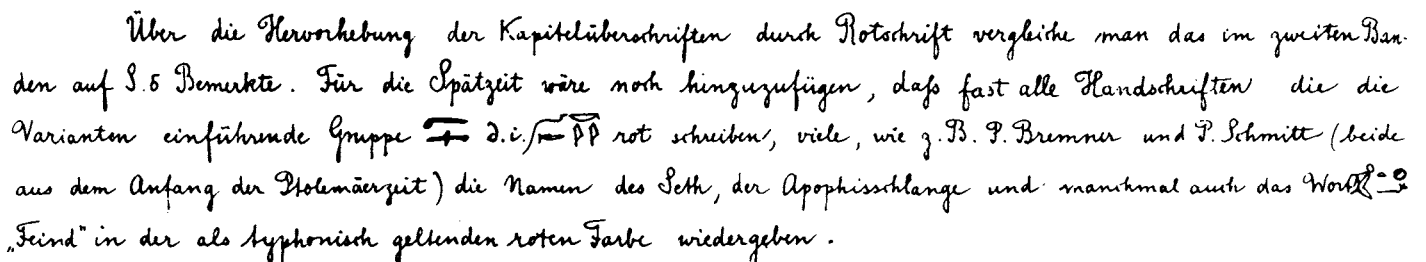 Über die Hervorhebung der Kapitelüberschriften durch Rotschrift vergleiche man das im zweiten Ban-
den auf S. 5 Bemerkte. Für die Spätzeit wäre noch hinzuzufügen, daſs fast alle Handschriften die die
Varianten einführende Gruppe d. i. rot schreiben, viele, wie z. B. P. Bremner und P. Schmitt (beide
aus dem Anfang der Ptolemäerzeit) die Namen des Seth, der Apophisschlange und manchmal auch das Wort
„Feind“ in der als typhonisch geltenden roten Farbe wiedergeben.